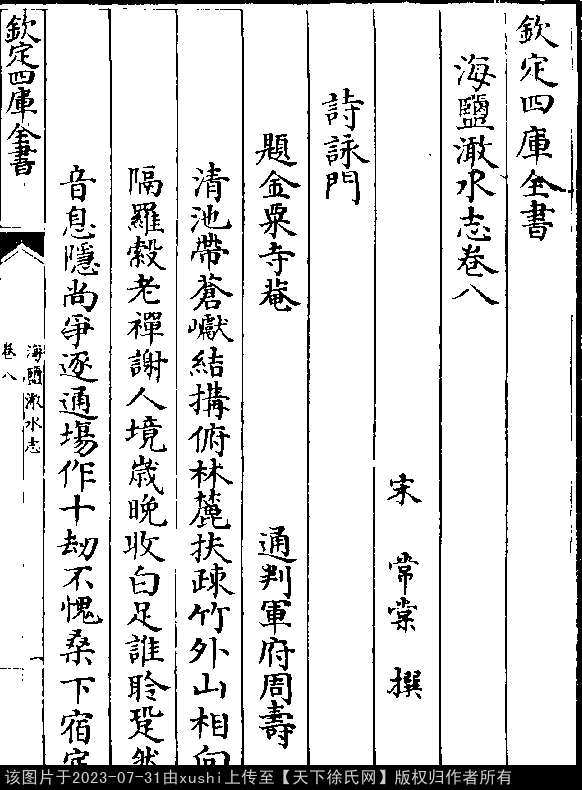 欽定四庫全書
海鹽澉水志卷八
宋 常棠 撰
詩詠門
題金粟寺菴 通判軍府周壽
清池帶蒼巘結搆俯林麓扶疎竹外山相向
隔羅縠老禪謝人境歲晩收白足誰聆跫然
音息隱尚爭逐通場作十劫不愧桑下宿
欽定四庫全書
海鹽澉水志
卷八
一
该图片于2023-07-31由xushi上传至【天下徐氏网】版权归作者所有